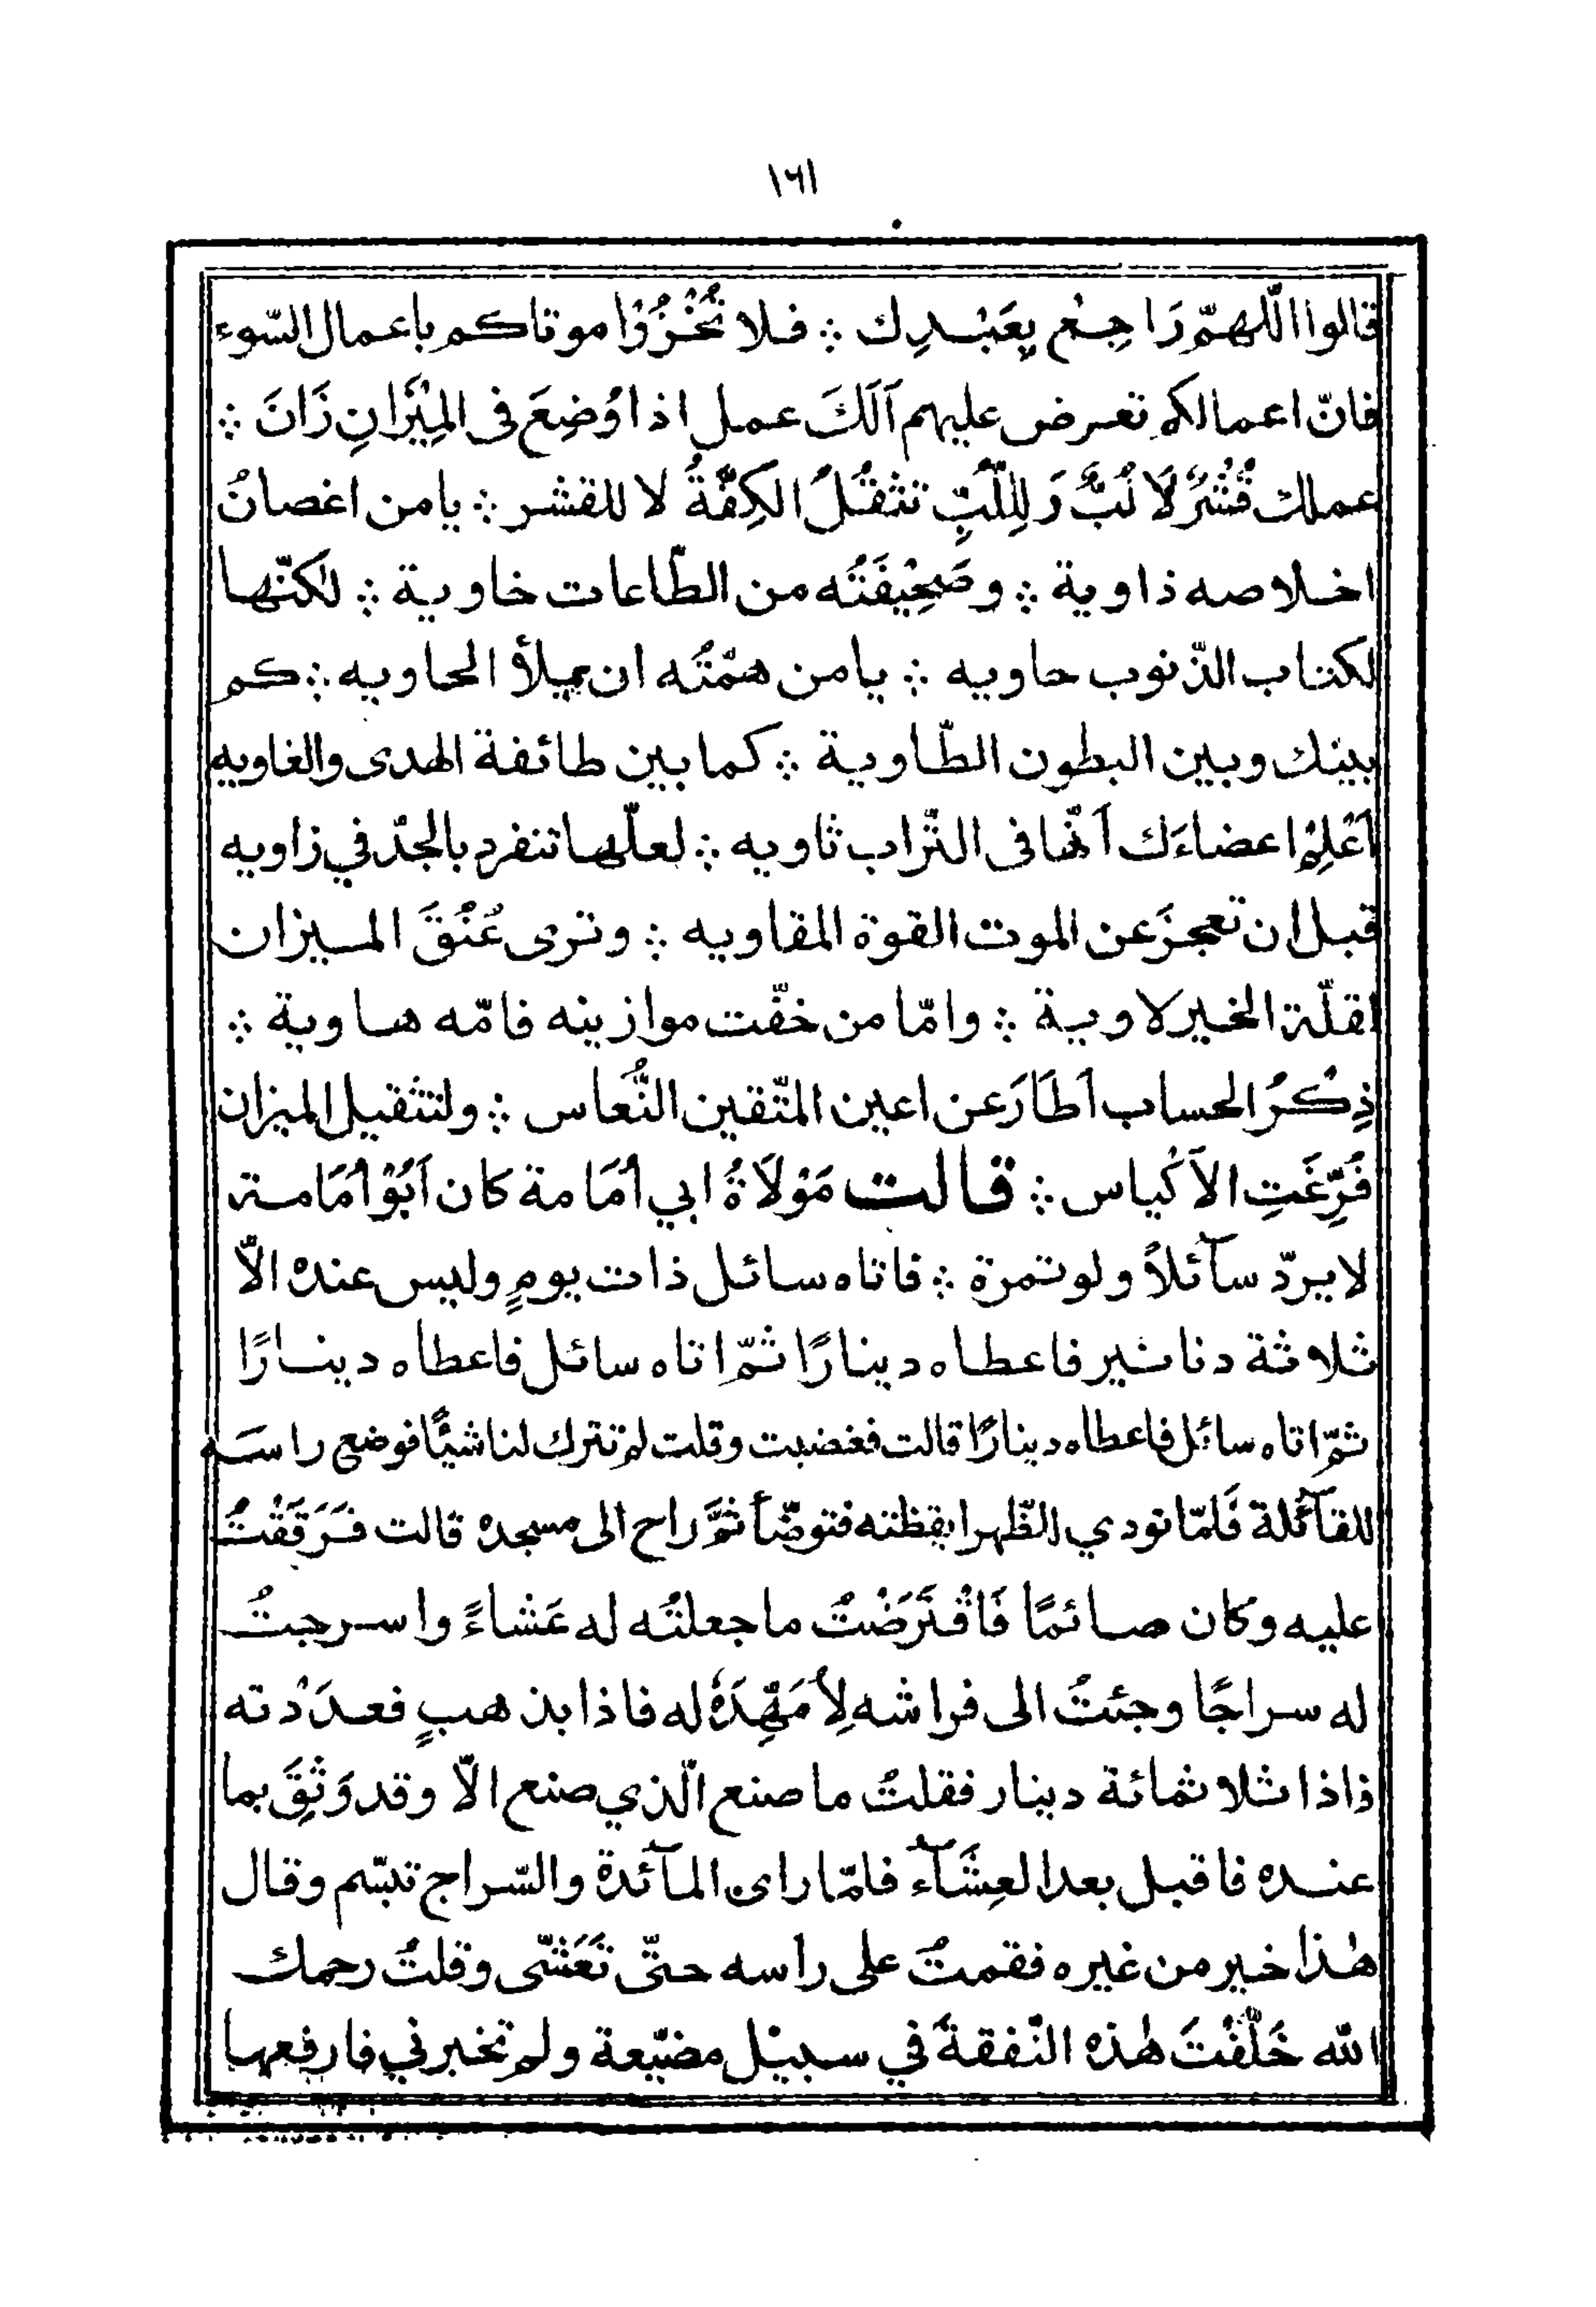 ١٦١
قالوا اللّهمّ رَاجِعْ بِعَبْدِك ؞ فلا تُخْزُوْا موتاكم باعمال السّوء
فانّ اعمالكم تعرض عليهم اَلَكَ عمل اذا وُضِعَ فى المِيْزَانِ زَانَ ؞
عملك قُشُرٌ لَا لُبٌّ وَلِلُّبِّ تثقُلُ الكِفَّةُ لا للقشر ؞ يا من اغصانُ
اخلاصه ذاوية ؞ وصَحِيْفَتُه من الطّاعات خاوية ؞ لكنّها
لكتاب الذّنوب حاويه ؞ يا من همّتُه ان يملأ الحاويه ؞ كم
بينك وبين البطون الطّاوية ؞ كما بين طائفة الهدى والغاويه
اَعْلِمْ اعضاءَك اَنّها فى التّراب ثاويه ؞ لعلّها تنفرد بالجدّ في زاويه
قبل ان تعجزَ عن الموت القوة المقاويه ؞ وترى عُنُقَ الميزان
لقلّة الخير لاوية ؞ وامّا من خفّت موازينه فامّه هاوية ؞
ذِكْرُ الحساب اَطَارَ عن اعين المتّقين النُّعاس ؞ ولتثقيل الميزان
فَرِّغَتِ الاَكْياس ؞ قالت مَوْلَاةُ ابي اُمَامة كان اَبُوْ اُمَامة
لا يردّ سآئلاً ولو تمرة ؞ فاتاه سائل ذات يومٍ وليس عنده الّا
ثلاثة دنانير فاعطاه دينارًا ثمّ اتاه سائل فاعطاه دينارًا
ثمّ اتاه سائل فاعطاه دينارًا قالت فغضبت وقلت لم تترك لنا شيئًا فوضع راسَه
للقآئلة فَلمّا نودي للظّهر ايقظته فتوضّأ ثمَّ راح الى مسجده قالت فَرَقَقْتُ
عليه وكان صائمًا فَاقْتَرَضْتُ ما جعلتُه له عَشاءً واسرجتُ
له سراجًا وجئتُ الى فراشه لِاُمَهِّدَهُ له فاذا بذهبٍ فعدَدْته
فاذا ثلاثمائة دينار فقلتُ ما صنع الّذي صنع الّا وقد وَثِقَ بما
عنده فاقبل بعد العِشَآء فلمّا راى المآئدة والسّراج تبسّم وقال
هٰذا خير من غيره فقمتُ على راسه حتّى تَعَشّى وقلتُ رحمك
الله خَلَّفْتَ هٰذه النّفقةَ في سبيْل مضيّعة ولم تخبرني فارفعها